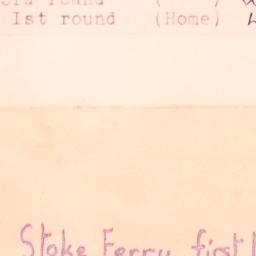 round
1st round (Home)
Stoke Ferry first